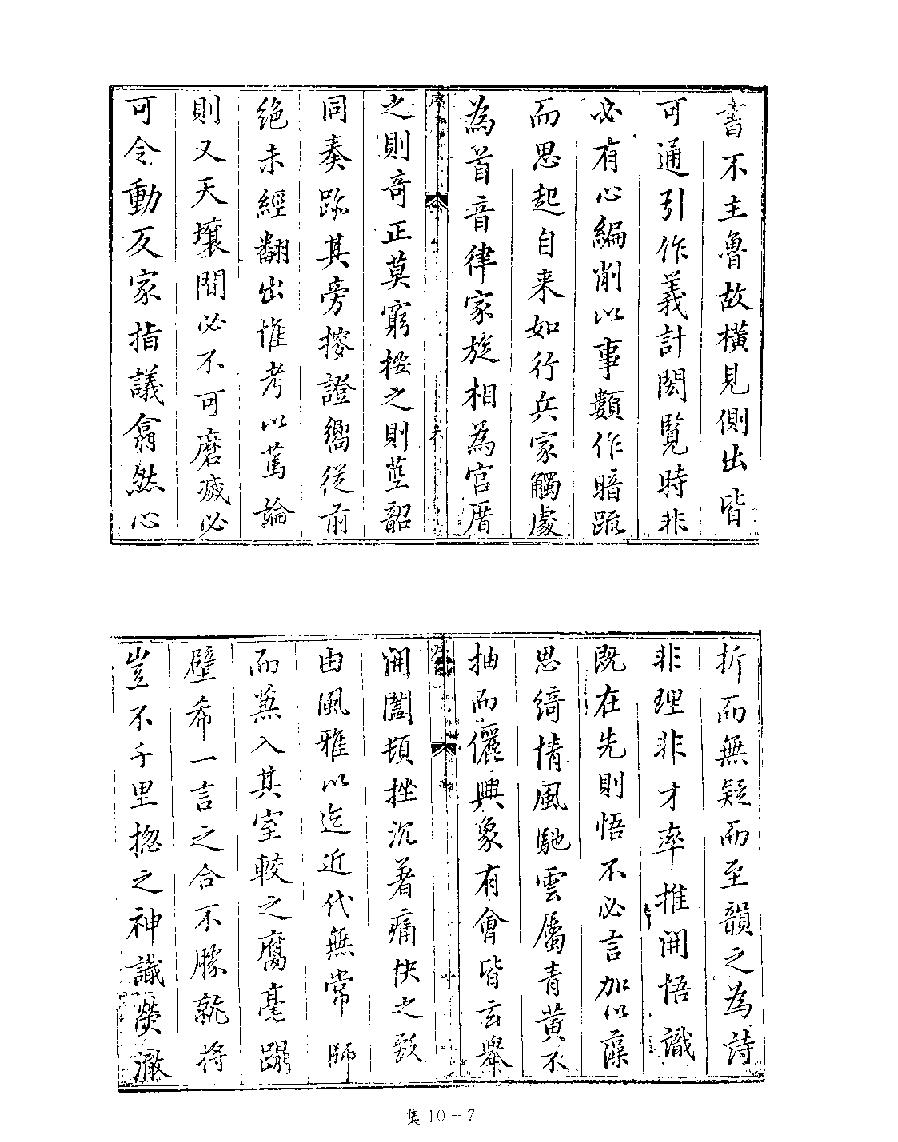 書不主魯故橫見側出皆
可通引作義計閎覽時非
必有心編削以事顓作暗疏
而思起自来如行兵家觸處
為首音律家旋相為宮厝
之則奇正莫窮按之則莖韶
同奏跡其旁搜證嚮従前
絶未經翻出惟考以篤論
則又天壤間必不可磨滅必
可令動反家指議翕然心
折而無疑而至韻之為詩
非理非才率推開悟識
既在先則悟不必言加以藻
思綺情風馳雲屬青黄不
抽而儷興象有會皆玄舉
開闔頓挫沉著痛快之致
由風雅以迄近代無常師
而兼入其室較之腐毫躡
壁希一言之合不勝孰将
豈不千里揔之神識熒澈
集10－7